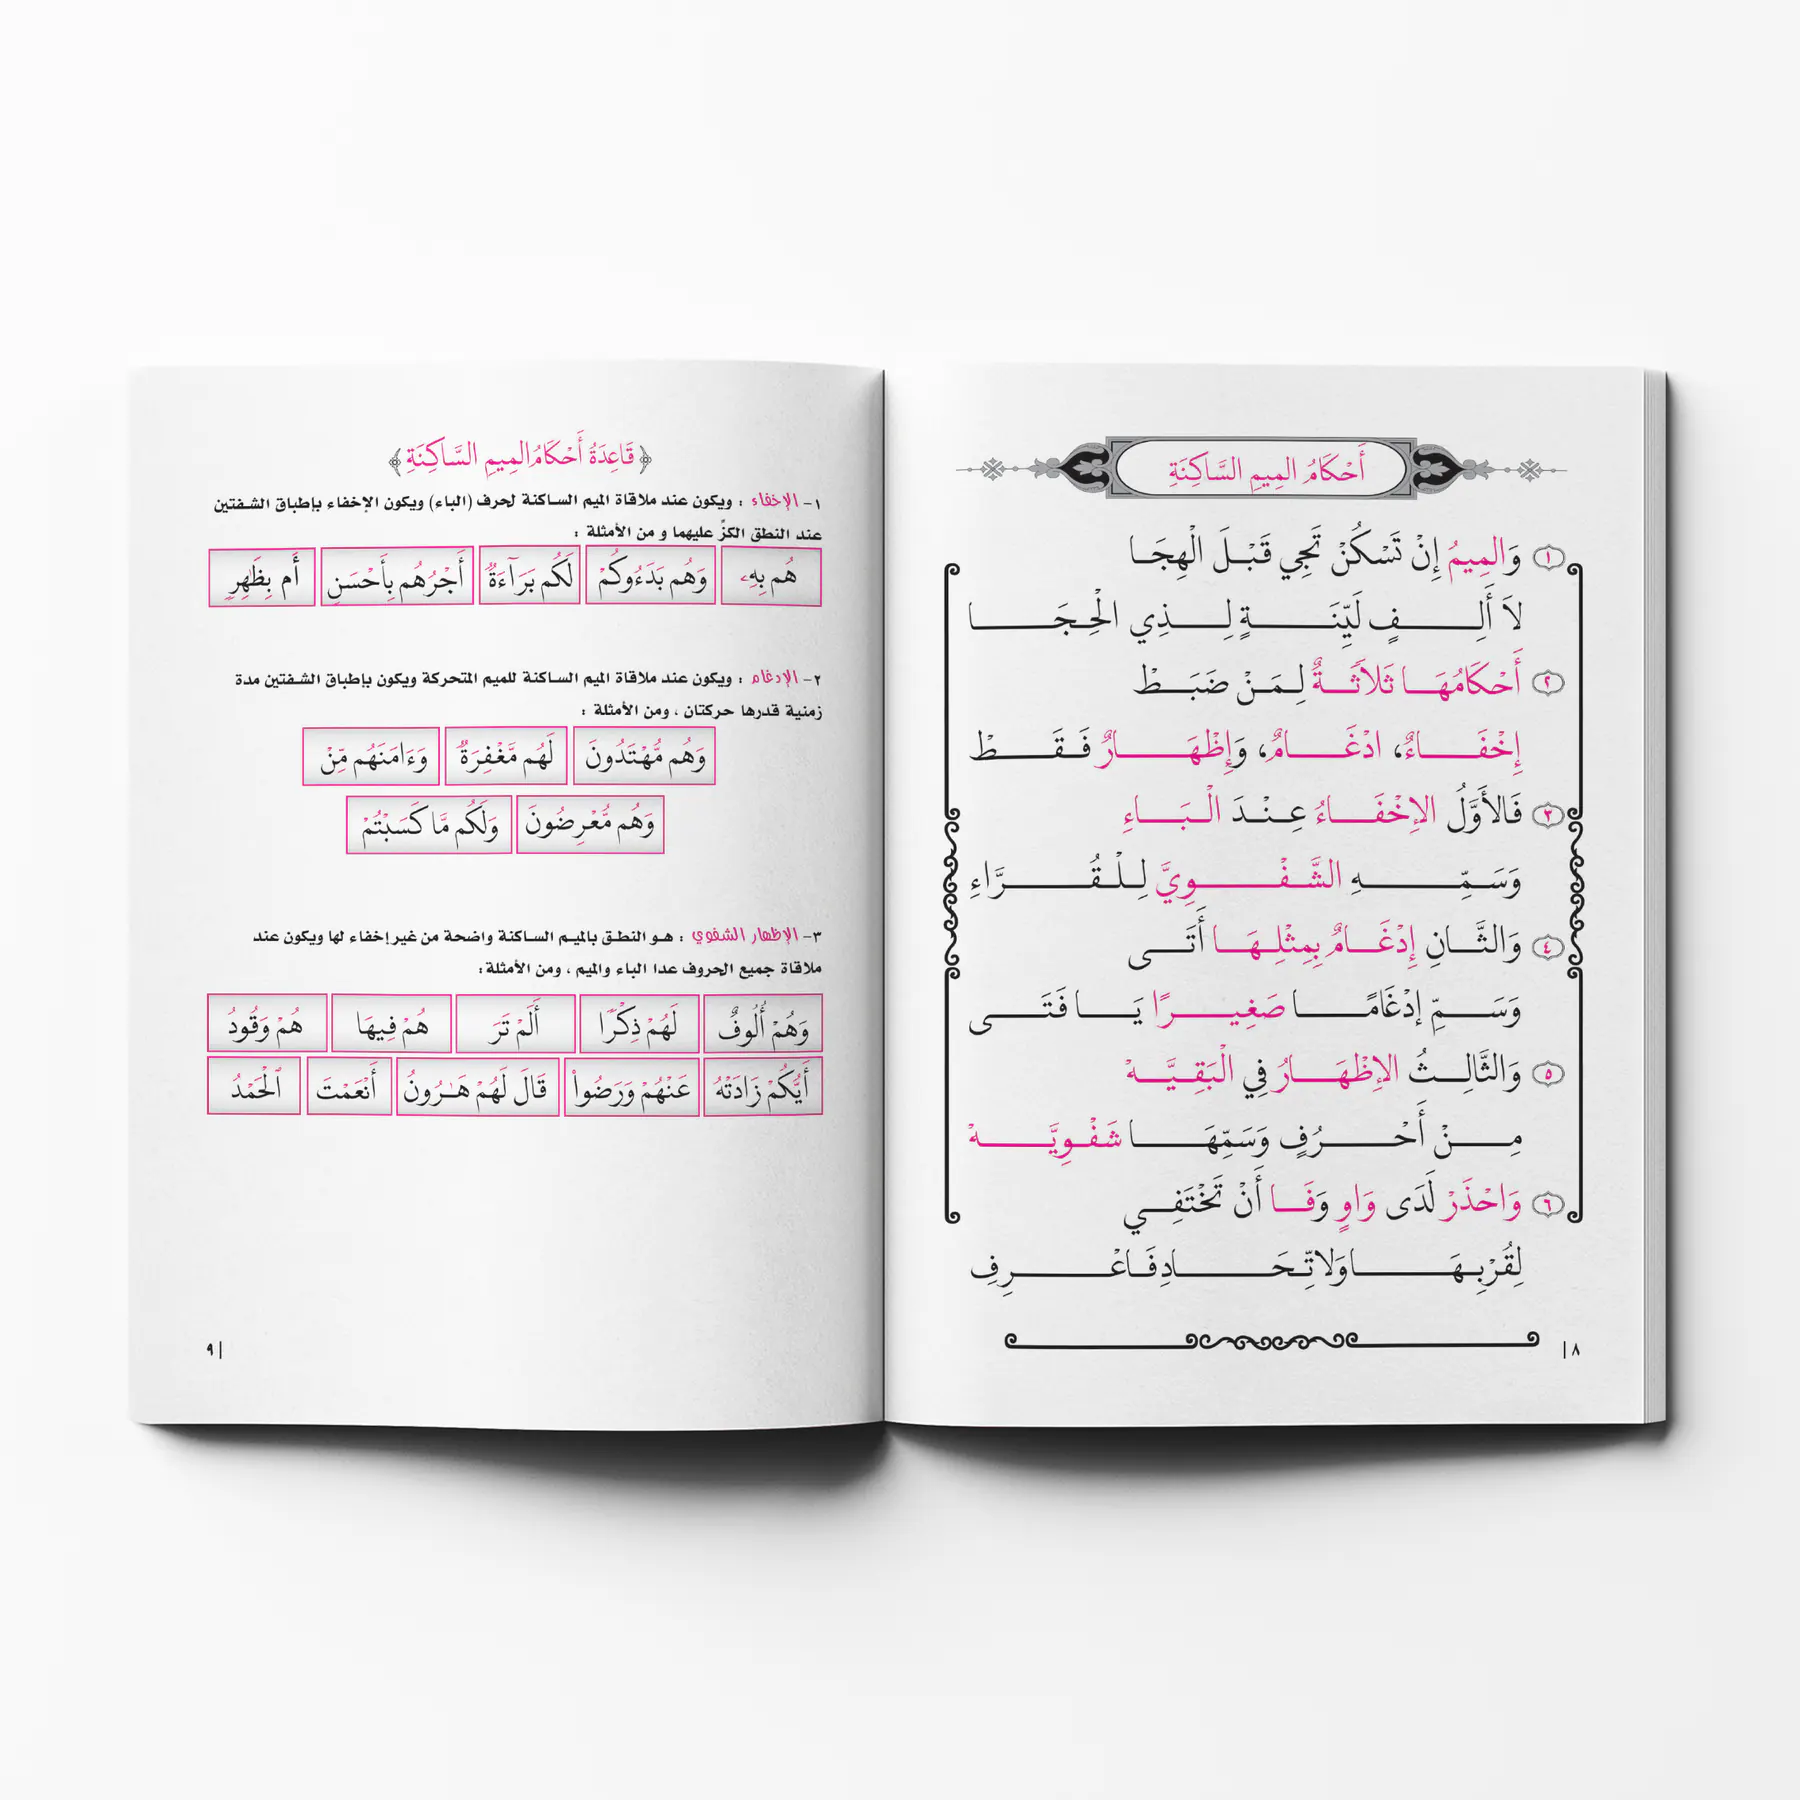 أَحْكَامُ الْمِيمِ السَّاكِنَةِ
١ وَالْمِيمُ إِنْ تَسْكُنْ تَجِي قَبْلَ الْهِجَا
لاَ أَلِفٍ لَيِّنَةٍ لِذِي الْحِجَا
٢ أَحْكَامُهَا ثَلاَثَةٌ لِمَنْ ضَبَطْ
إِخْفَاءٌ، ادْغَامٌ، وَإِظْهَارٌ فَقَطْ
٣ فَالأَوَّلُ الإِخْفَاءُ عِنْدَ الْبَاءِ
وَسَمِّهِ الشَّفْوِيَّ لِلْقُرَّاءِ
٤ وَالثَّانِ إِدْغَامٌ بِمِثْلِهَا أَتَى
وَسَمِّ إدْغَامًا صَغِيرًا يَا فَتَى
٥ وَالثَّالِثُ الإِظْهَارُ فِي الْبَقِيَّهْ
مِنْ أَحْرُفٍ وَسَمِّهَا شَفْوِيَّهْ
٦ وَاحْذَرْ لَدَى وَاوٍ وَفَا أَنْ تَخْتَفِي
لِقُرْبِهَا وَلاتِّحَادِ فَاعْرِفِ
٨
﴿قَاعِدَةُ أَحْكَامُ الْمِيمِ السَّاكِنَةِ﴾
١- الإخفاء : ويكون عند ملاقاة الميم الساكنة لحرف (الباء) ويكون الإخفاء بإطباق الشفتين
عند النطق الكزِّ عليهما و من الأمثلة :
هُم بِهِۦ وَهُم بَدَءُوكُمْ لَكُم بَرَآءَةٌ أَجْرَهُم بِأَحْسَنِ أَم بِظَٰهِرٍ
٢- الإدغام : ويكون عند ملاقاة الميم الساكنة للميم المتحركة ويكون بإطباق الشفتين مدة
زمنية قدرها حركتان ، ومن الأمثلة :
وَهُم مُّهْتَدُونَ لَهُم مَّغْفِرَةٌ وَءَامَنَهُم مِّنْ
وَهُم مُّعْرِضُونَ وَلَكُم مَّا كَسَبْتُمْ
٣- الإظهار الشفوي : هو النطق بالميم الساكنة واضحة من غير إخفاء لها ويكون عند
ملاقاة جميع الحروف عدا الباء والميم ، ومن الأمثلة:
وَهُمْ أُلُوفٌ لَهُمْ ذِكْرًا أَلَمْ تَرَ هُمْ فِيهَا هُمْ وَقُودُ
أَيُّكُمْ زَادَتْهُ عَنْهُمْ وَرَضُوا۟ قَالَ لَهُمْ هَٰرُونُ أَنْعَمْتَ ٱلْحَمْدُ
٩